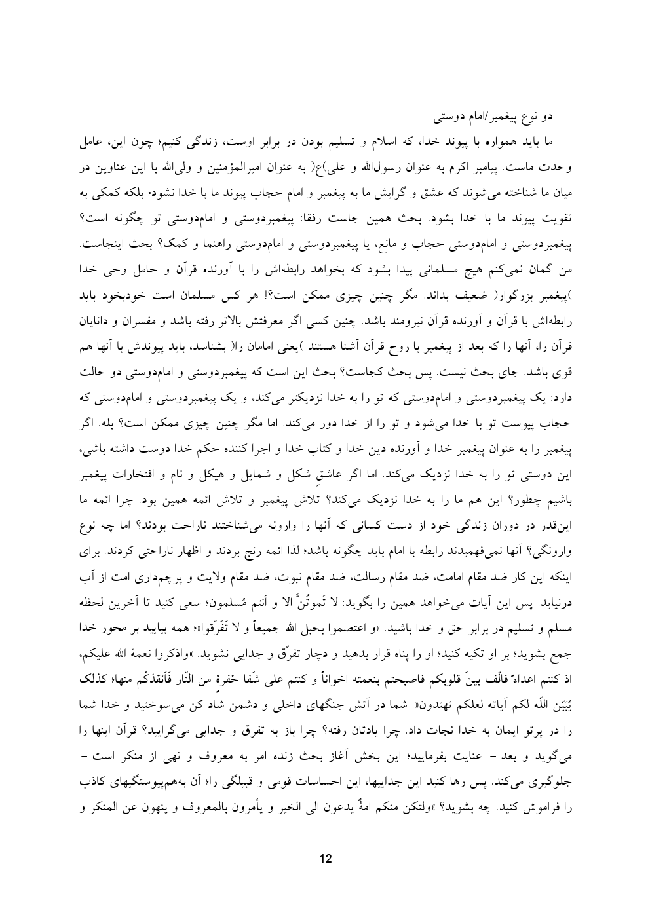 دو نوع پیغمبر/امام دوستی
ما باید همواره با پیوند خدا، که اسلام و تسلیم بودن در برابر اوست، زندگی کنیم؛ چون این، عامل
وحدت ماست. پیامبر اکرم به عنوان رسول‌الله و علی)ع( به عنوان امیرالمؤمنین و ولی‌الله با این عناوین در
میان ما شناخته می‌شوند که عشق و گرایش ما به پیغمبر و امام حجاب پیوند ما با خدا نشود؛ بلکه کمکی به
تقویت پیوند ما با خدا بشود. بحث همین جاست رفقا: پیغمبردوستی و امام‌دوستی تو چگونه است؟
پیغمبردوستی و امام‌دوستی حجاب و مانع، یا پیغمبردوستی و امام‌دوستی راهنما و کمک؟ بحث اینجاست.
من گمان نمی‌کنم هیچ مسلمانی پیدا بشود که بخواهد رابطه‌اش را با آورنده قرآن و حامل وحی خدا
)پیغمبر بزرگوار( ضعیف بداند. مگر چنین چیزی ممکن است؟! هر کس مسلمان است خودبخود باید
رابطه‌اش با قرآن و آورنده قرآن نیرومند باشد. چنین کسی اگر معرفتش بالاتر رفته باشد و مفسران و دانایان
قرآن را، آنها را که بعد از پیغمبر با روح قرآن آشنا هستند )یعنی امامان را( بشناسد، باید پیوندش با آنها هم
قوی باشد. جای بحث نیست. پس بحث کجاست؟ بحث این است که پیغمبردوستی و امام‌دوستی دو حالت
دارد: یک پیغمبردوستی و امام‌دوستی که تو را به خدا نزدیکتر می‌کند، و یک پیغمبردوستی و امام‌دوستی که
حجاب پیوست تو با خدا می‌شود و تو را از خدا دور می‌کند. اما مگر چنین چیزی ممکن است؟ بله. اگر
پیغمبر را به عنوان پیغمبر خدا و آورنده دین خدا و کتاب خدا و اجرا کننده حکم خدا دوست داشته باشی،
این دوستی تو را به خدا نزدیک می‌کند. اما اگر عاشقِ شکل و شمایل و هیکل و نام و افتخارات پیغمبر
باشیم چطور؟ این هم ما را به خدا نزدیک می‌کند؟ تلاش پیغمبر و تلاش ائمه همین بود. چرا ائمه ما
این‌قدر در دوران زندگی خود از دست کسانی که آنها را وارونه می‌شناختند ناراحت بودند؟ اما چه نوع
وارونگی؟ آنها نمی‌فهمیدند رابطه با امام باید چگونه باشد؛ لذا ائمه رنج بردند و اظهار ناراحتی کردند. برای
اینکه این کار ضد مقام امامت، ضد مقام رسالت، ضد مقام نبوت، ضد مقام ولایت و پرچم‌داری امت از آب
درنیاید. پس این آیات می‌خواهد همین را بگوید: لا تَموتُنَّ الا و أنتم مُسلمون؛ سعی کنید تا آخرین لحظه
مسلم و تسلیم در برابر حق و خدا باشید. »و اعتصموا بحبل الله جمیعاً و لا تَفَرَّقوا«؛ همه بیایید بر محور خدا
جمع بشوید؛ بر او تکیه کنید؛ او را پناه قرار بدهید و دچار تفرّق و جدایی نشوید. »واذکروا نعمة الله علیکم،
اذ کنتم اعداءً فألّف بینَ قلوبکم فاصبحتم بنعمته اخواناً و کنتم علی شَفا حُفرةٍ من النّار فَأنقذکُم منها؛ کذلک
یُبَیّن اللّه لکم آیاته لعلکم تهتدون«. شما در آتش جنگهای داخلی و دشمن شاد کن می‌سوختید و خدا شما
را در پرتو ایمان به خدا نجات داد. چرا یادتان رفته؟ چرا باز به تفرق و جدایی می‌گرایید؟ قرآن اینها را
می‌گوید و بعد – عنایت بفرمایید؛ این بخش آغاز بحث زنده امر به معروف و نهی از منکر است –
جلوگیری می‌کند. پس رها کنید این جداییها، این احساسات قومی و قبیلگی را؛ آن به‌هم‌پیوستگیهای کاذب
را فراموش کنید. چه بشوید؟ »ولتکن منکم امةٌ یدعون الی الخیر و یأمرون بالمعروف و ینهون عن المنکر و
12